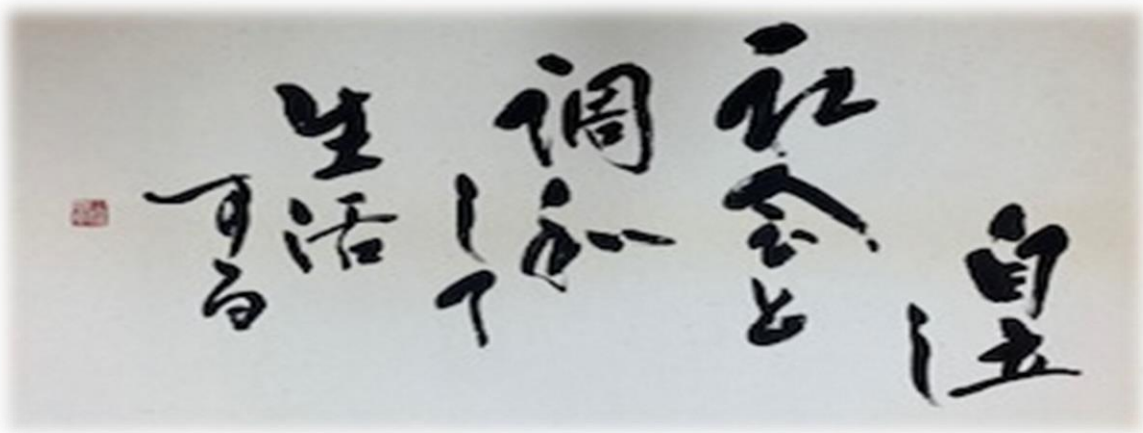 自立
し
社会と
調和
して
生活
する